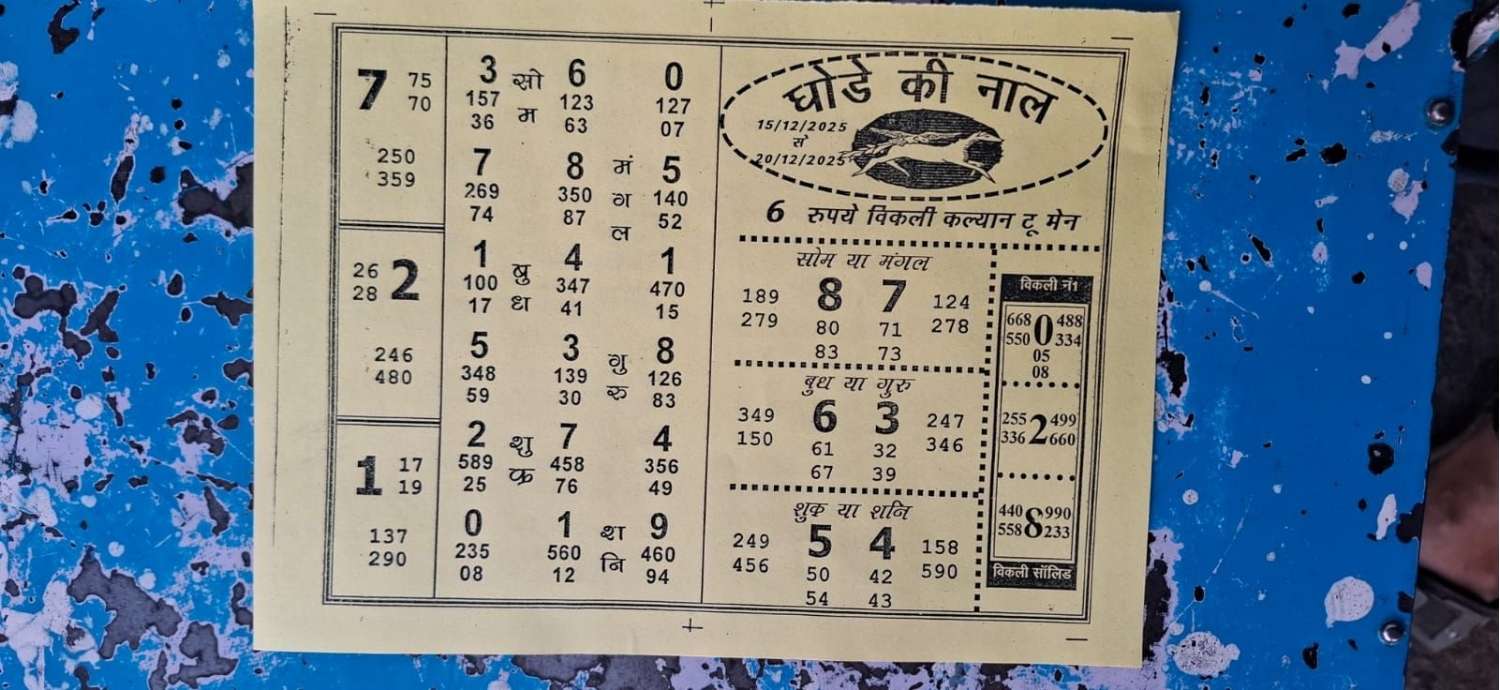 7 75
70
250
359
26 2
28
246
480
1 17
19
137
290
3 सो 6 0
157 म 123 127
36 63 07
7 8 मं 5
269 350 ग 140
74 87 ल 52
1 बु 4 1
100 ध 347 470
17 41 15
5 3 गु 8
348 139 रु 126
59 30 83
2 शु 7 4
589 क्र 458 356
25 76 49
0 1 श 9
235 560 नि 460
08 12 94
घोडे की नाल
15/12/2025
से
20/12/2025
6 रुपये विकली कल्यान टू मेन
सोम या मंगल
189 8 7 124
279 80 71 278
83 73
बुध या गुरु
349 6 3 247
150 61 32 346
67 39
शुक्र या शनि
249 5 4 158
456 50 42 590
54 43
विकली नं1
668 0 488
550 334
05
08
255 2 499
336 660
440 8 990
558 233
विकली सॉलिड